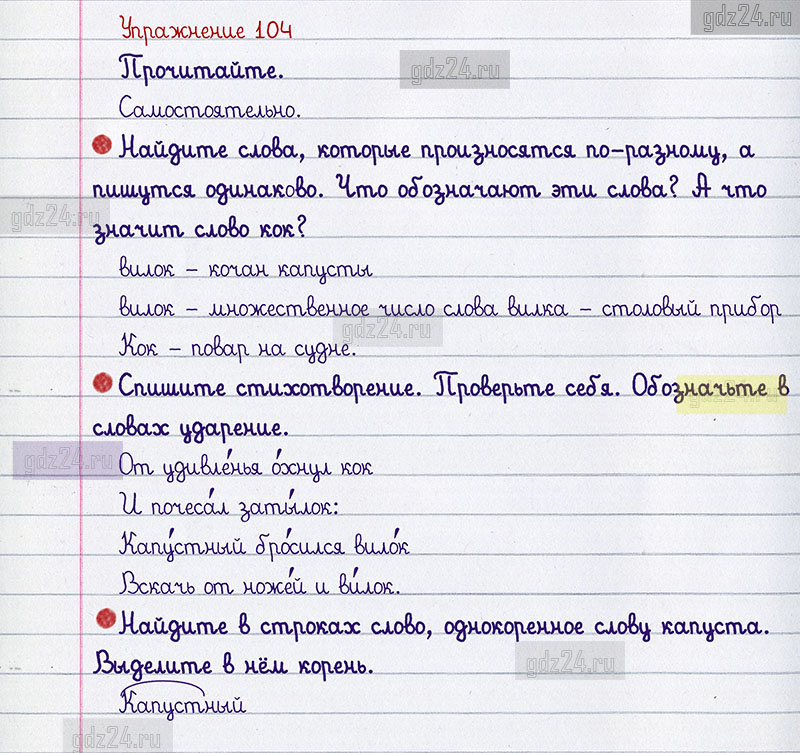 Упражнение 104
gdz24.ru
Прочитайте.
gdz24.ru
Самостоятельно.
Найдите слова, которые произносятся по-разному, а
пишутся одинаково. Что обозначают эти слова? А что
gdz24.ru
значит слово кок?
вилок – кочан капусты
вилок – множественное число слова вилка – столовый прибор
gdz24.ru
Кок – повар на судне.
Спишите стихотворение. Проверьте себя. Обозначьте в
gdz24.ru
словах ударение.
gdz24.ru
От удивле́нья о́хнул кок
И почеса́л заты́лок:
Капу́стный бро́сился вило́к
Вскачь от ноже́й и ви́лок.
Найдите в строках слово, однокоренное слову капуста.
Выделите в нём корень.
gdz24.ru
Капустный
gdz24.ru